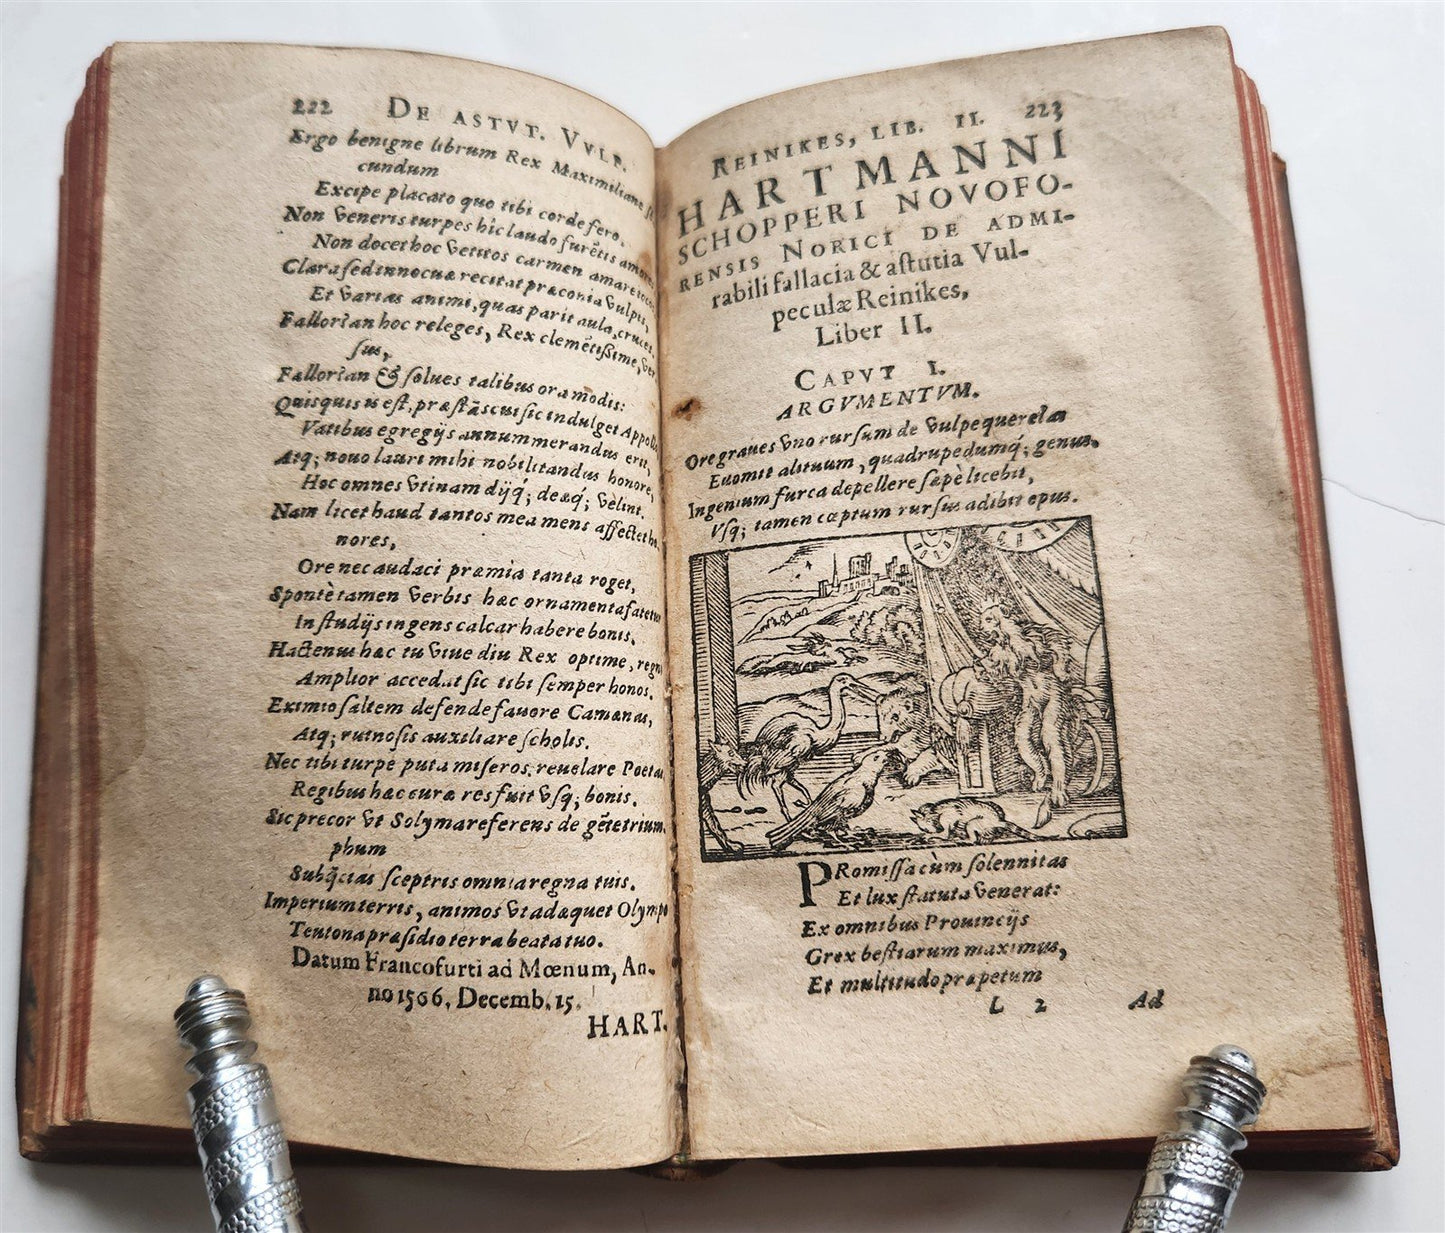 222 DE ASTVT. VVLP.
Ergo benigne librum Rex Maximiliane
cundum
Excipe placato quo tibi corde fero.
Non Veneris turpes hic laudo furẽtis amores
Non docet hoc vetitos carmen amare
Clara sed innocuæ recitat præconia Vulpis,
Et varias animi, quas parit aula, cruces.
Fallor? an hoc releges, Rex clemẽtissime,
sus,
Fallor? an & solues talibus ora modis:
Quisquis is est, præstãs cui sic indulget Apollo
Vatibus egregijs annummerandus erit,
Atq; nouo lauri mihi nobilitandus honore,
Hoc omnes vtinam dijq́; deæq́; velint.
Nam licet haud tantos mea mens affectet ho
nores,
Ore nec audaci præmia tanta roget,
Spontè tamen verbis hæc ornamenta
In studijs ingens calcar habere bonis.
Hactenus hæc tu viue diu Rex optime,
Amplior accedat sic tibi semper honos.
Eximio saltem defende fauore Camœnas,
Atq; ruinosis auxiliare scholis.
Nec tibi turpe puta miseros releuare Poetas
Regibus hæc curæ res fuit vsq; bonis.
Sic precor vt Solyma referens de gẽte trium-
phum
Subijcias sceptris omnia regna tuis.
Imperium terris, animos vt adæquet Olympo
Teutona præsidio terra beata tuo.
Datum Francofurti ad Mœnum, An-
no 1566. Decemb. 15.
HART.
REINIKES, LIB. II. 223
HARTMANNI
SCHOPPERI NOVOFO-
RENSIS NORICI DE ADMI-
rabili fallacia & astutia Vul-
peculæ Reinikes,
Liber II.
CAPVT I.
ARGVMENTVM.
Ore graues vno rursum de vulpe querelas
Euomit alituum, quadrupedumq́; genus.
Ingenium furca depellere sæpè licebit,
Vsq; tamen cœptum rursus adibit opus.
PRomissa cùm solennitas
Et lux statuta venerat:
Ex omnibus Prouincijs
Grex bestiarum maximus,
Et multitudo præpetum
L 2 Ad